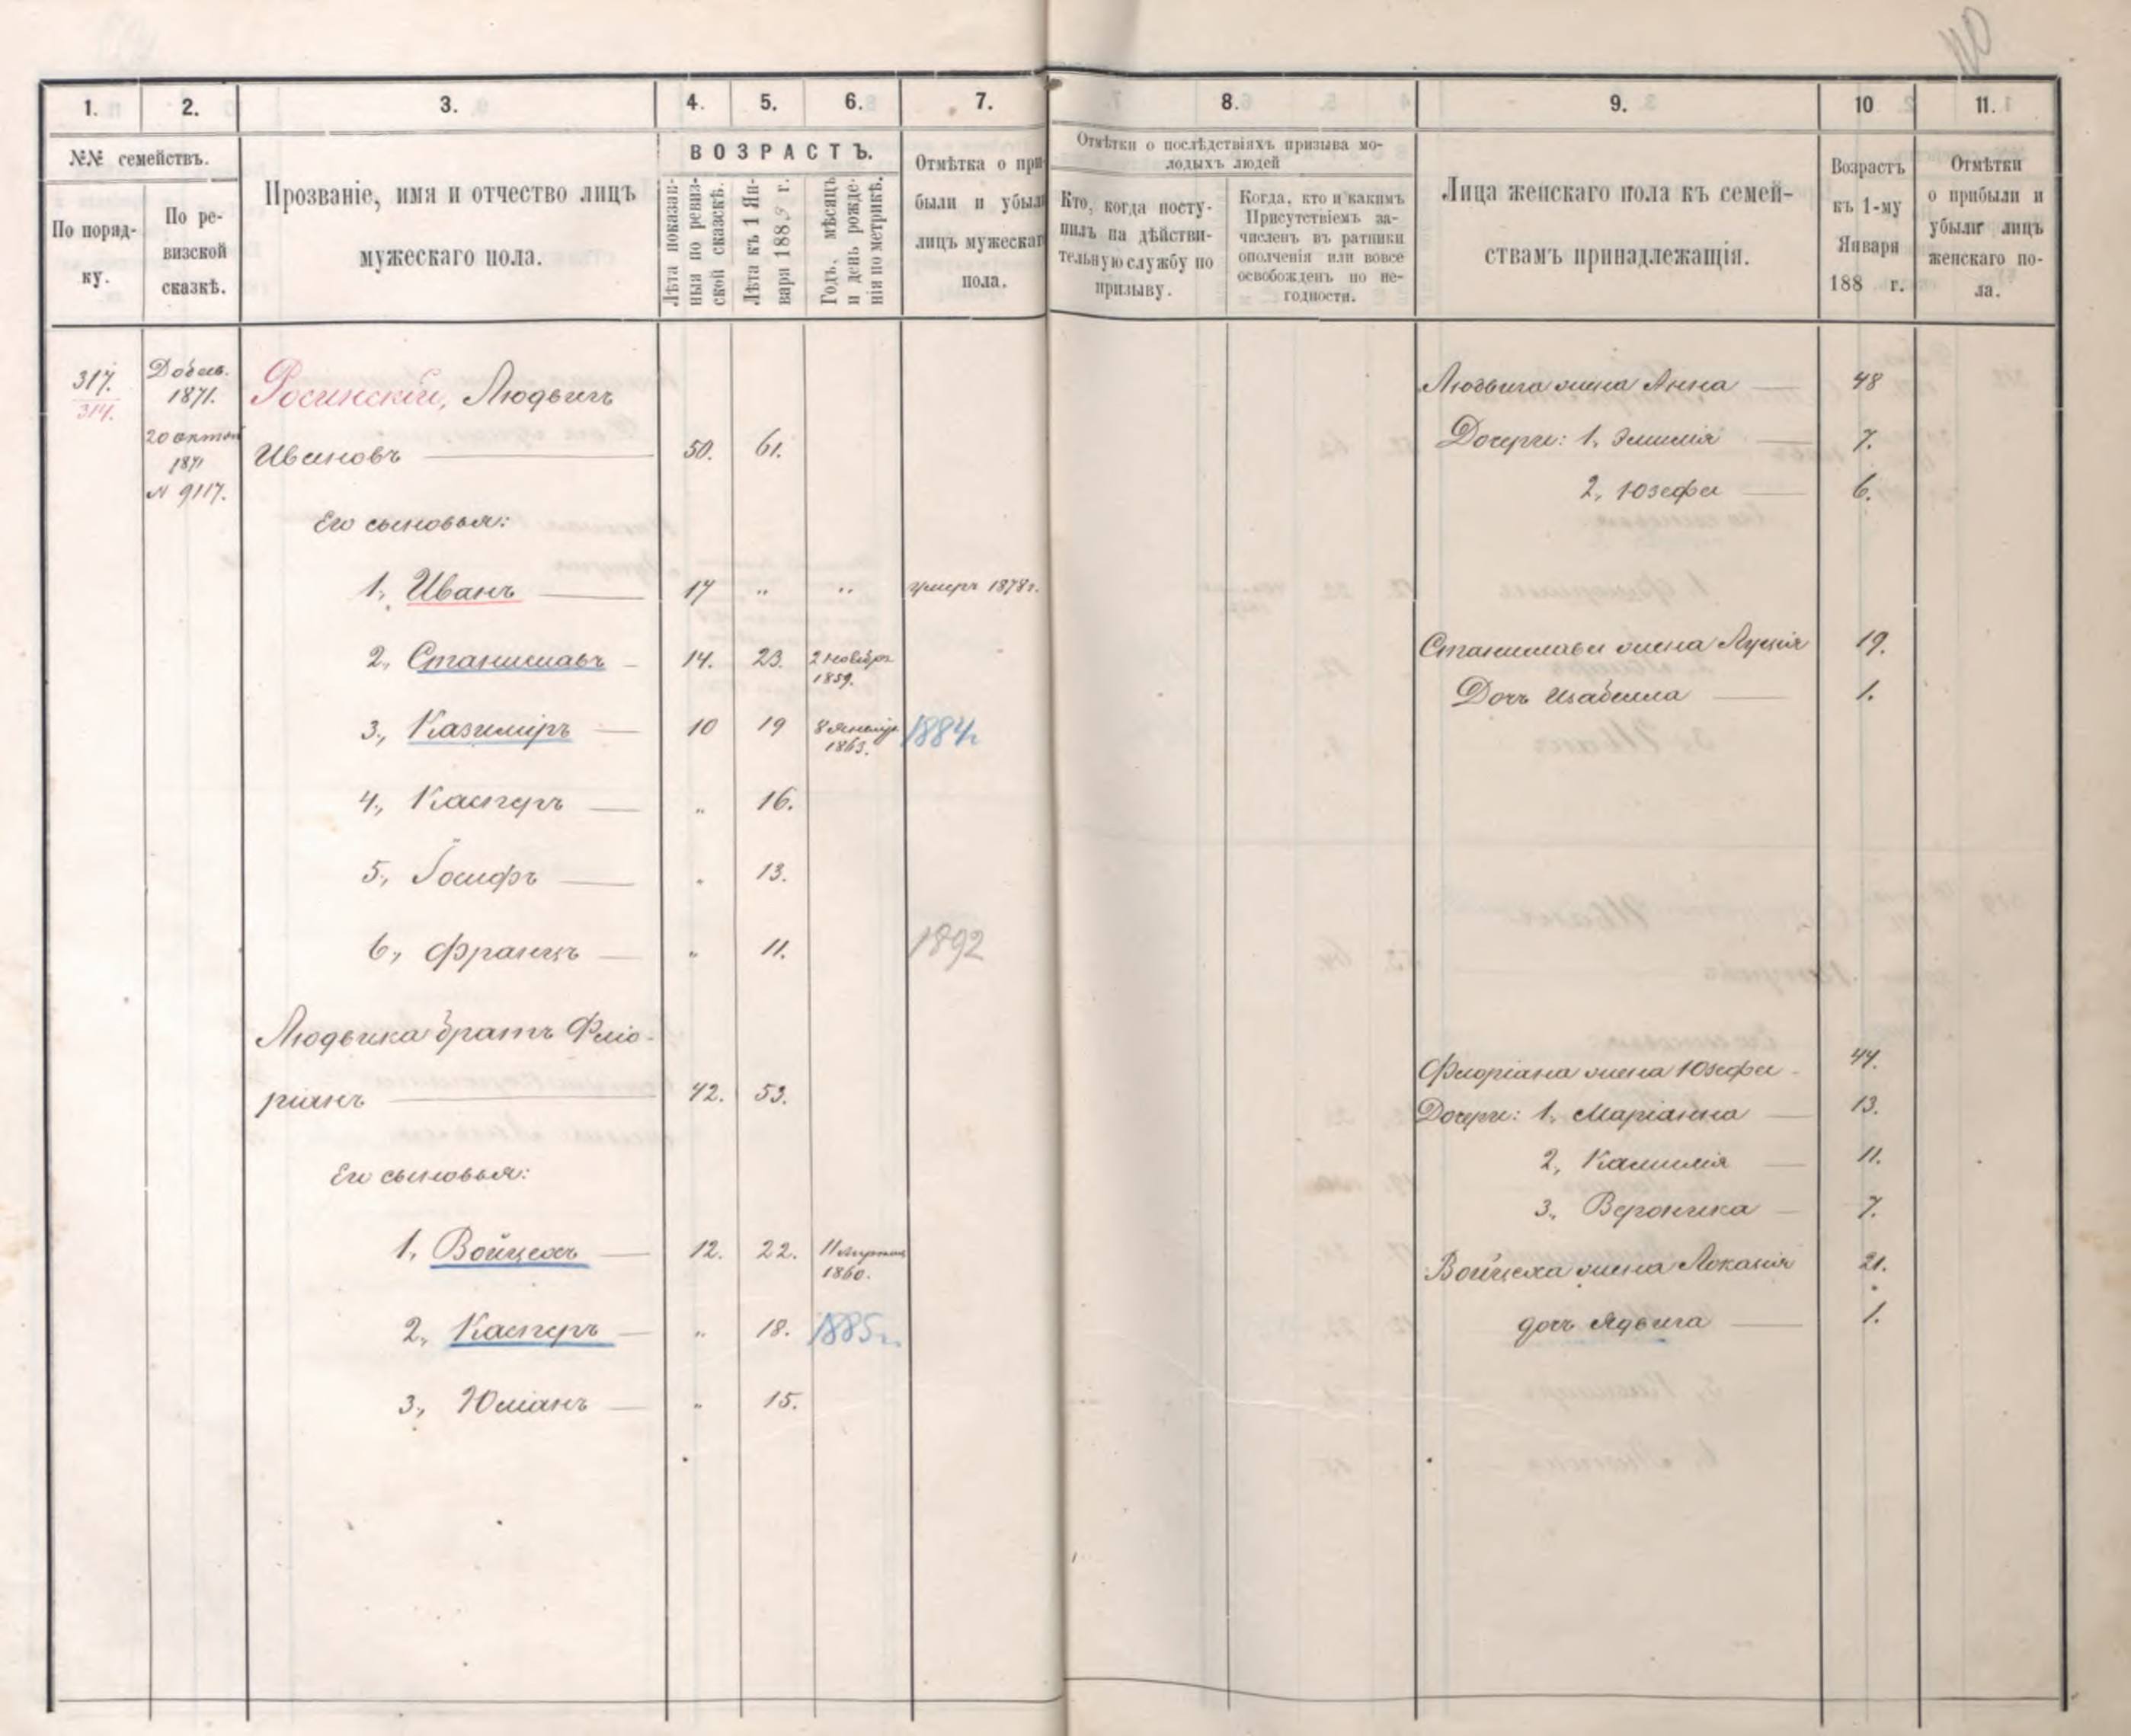 110
1. 2. 3. 4. 5. 6. 7. 8. 9. 10 11.
№№ семействъ.
По поряд-
ку.
По ре-
визской
сказкѣ.
Прозваніе, имя и отчество лицъ
мужескаго пола.
ВОЗРАСТЪ.
Лѣта показан-
ныя по ревиз-
ской сказскѣ.
Лѣта къ 1 Ян-
варя 188 г.
Годъ, мѣсяцъ
и день рожде-
нія по метрикѣ.
Отмѣтка о при
были и убыли
лицъ мужескаг
пола.
Отмѣтки о послѣдствіяхъ призыва мо-
лодыхъ людей
Кто, когда посту-
пилъ на дѣйстви-
тельную службу по
призыву.
Когда, кто и какимъ
Присутствіемъ за-
численъ въ ратники
ополченія или вовсе
освобожденъ по не-
годности.
Лица женскаго пола къ семей-
ствамъ принадлежащія.
Возрастъ
къ 1-му
Января
188 г.
Отмѣтки
о прибыли и
убыли лицъ
женскаго по-
ла.
317.
314.
1871.
20
1871
N 9117.
Росинскій, Людвигъ
Ивановъ 50. 61.
Его сыновья:
1, Иванъ 17 " " умеръ 1878 г.
2, Станиславъ 14. 23. 2 Ноября
1859.
3, Казиміръ 10 19 8 Января 1884 г
1863.
4, Касперъ " 16.
5, Іосифъ " 13.
6, Францъ " 11. 1892
Людвика братъ Фло-
ріанъ 42. 53.
Его сыновья:
1, Войцехъ 12. 22. 11
1860.
2, Касперъ " 18. 1885 г.
3, Юліанъ " 15.
Людвига жена Анна 48
Дочери: 1, Эмилія 7.
2, Юзефа 6.
Станислава жена Луція 19.
Дочь Изабелла 1.
Флоріана жена Юзефа 44.
Дочери: 1, Маріанна 13.
2, Камилія 11.
3, Вероника 7.
Войцеха жена 21.
дочь Ядвига 1.